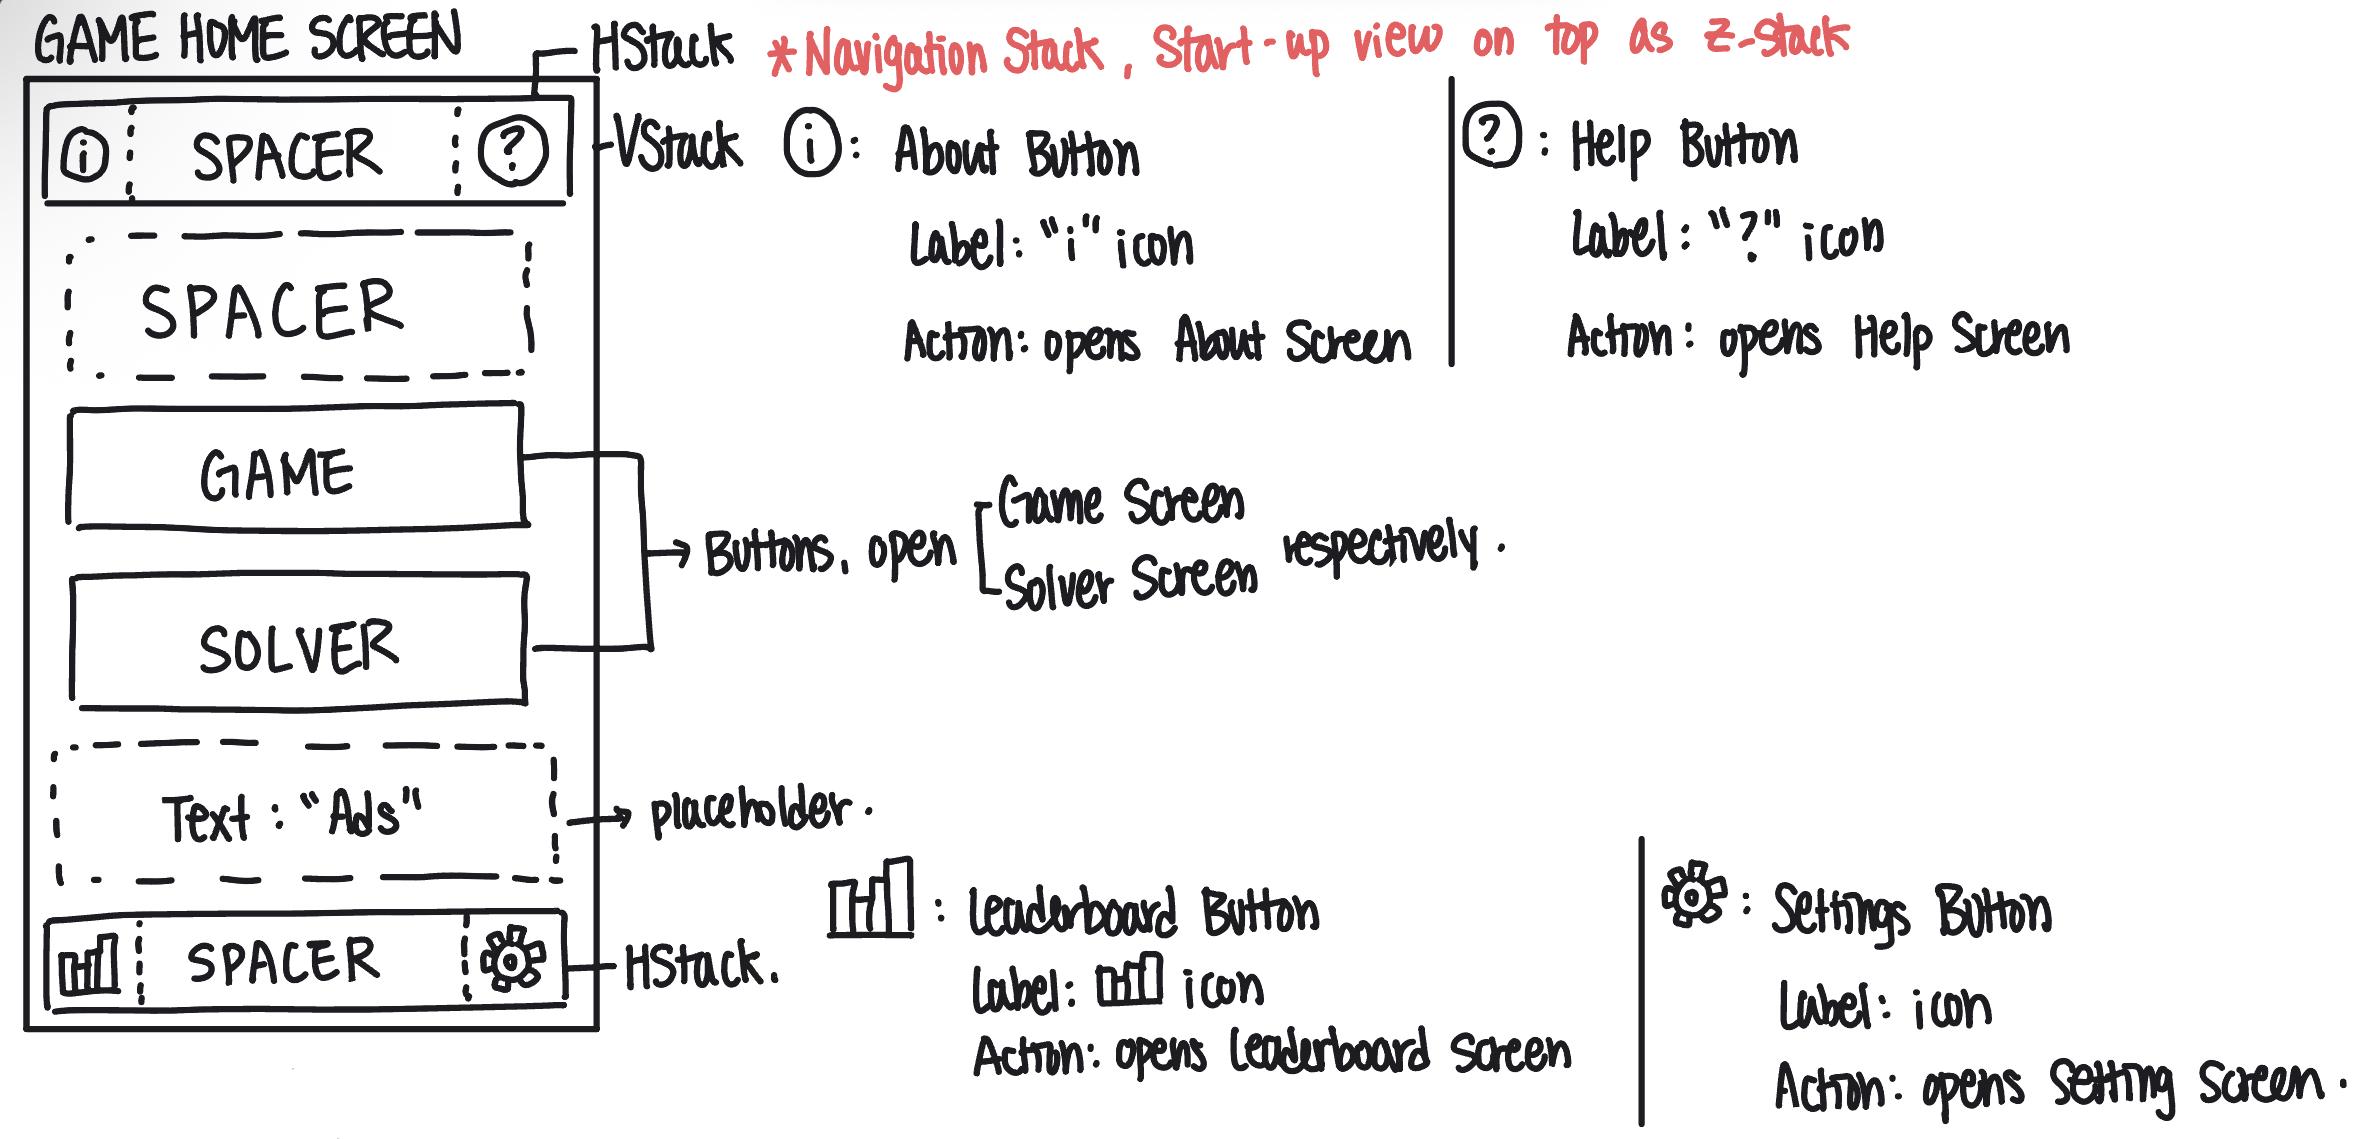 GAME HOME SCREEN
HStack
*Navigation Stack, Start-up view on top as z-stack
i
SPACER
?
VStack
i : About Button
Label: "i" icon
Action: opens About Screen
? : Help Button
Label: "?" icon
Action: opens Help Screen
SPACER
GAME
SOLVER
Buttons, open
Game Screen
Solver Screen
respectively.
Text: "Ads"
placeholder.
SPACER
HStack.
: Leaderboard Button
Label: icon
Action: opens Leaderboard Screen
: Settings Button
Label: icon
Action: opens Setting Screen.